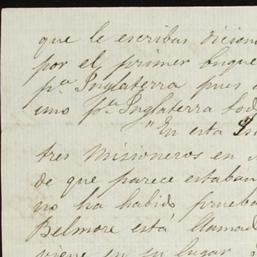 que le escribas dicien
por el primer buque
pa. Inglaterra pues
uno pa. Inglaterra tod
"En esta
tres misioneros en
de que parece estaban
no ha habido prueba
Belmore está llamad
viene en su lugar